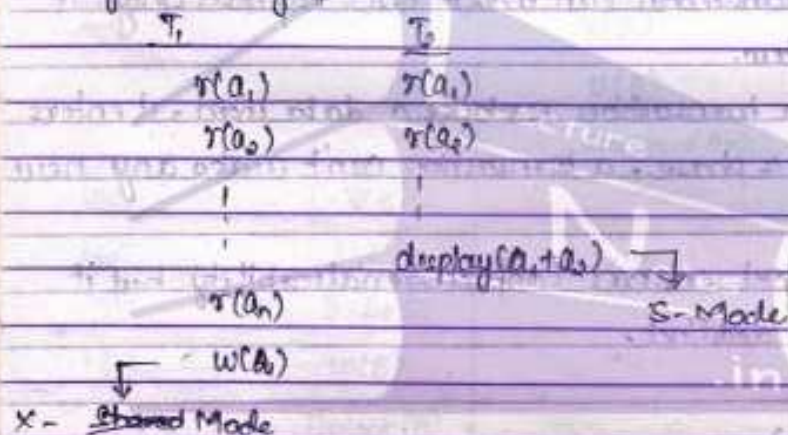 T₁ T₂
r(a₁) r(a₁)
r(a₂) r(a₂)
display(a₁+a₂)
r(aₙ) S-Mode
w(a₁)
X- Shared Mode